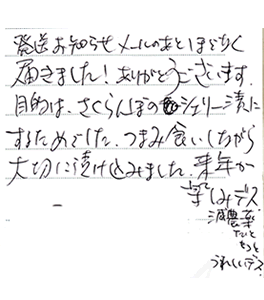 発送お知らせメールのあとほどなく
届きました！ありがとうございます。
目的は、さくらんぼのシェリー漬に
するためでした。つまみ食いしながら
大切に漬け込みました。来年が
楽しみデス
減農薬
だと
もっと
うれしいデス.